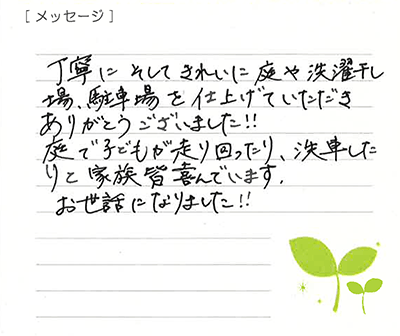 [ メッセージ ]
丁寧に そして きれいに 庭や 洗濯干し
場、駐車場 を 仕上げて いただき
ありがとう ございました!!
庭で 子どもが 走り回ったり、洗車した
りと 家族 皆 喜んでいます。
お世話に なりました!!